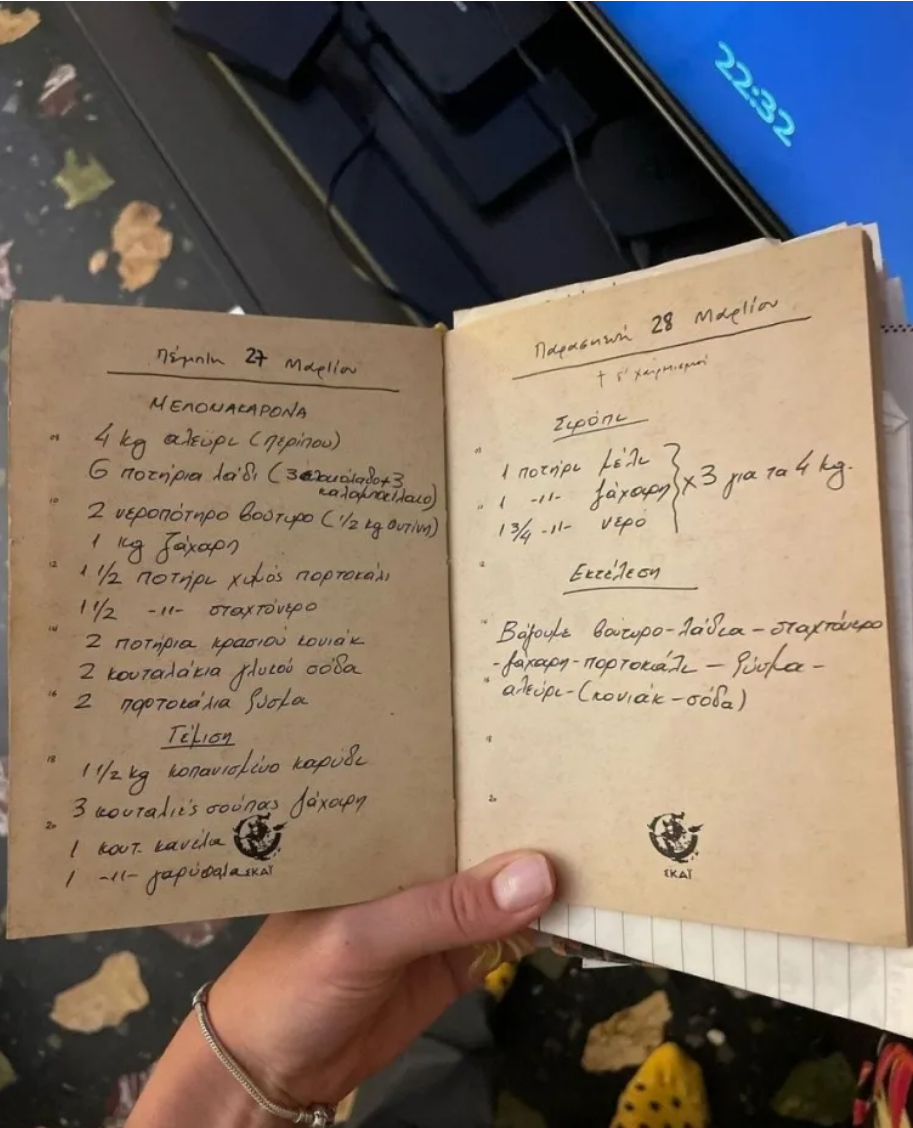 22:32
Πέμπτη 27 Μαρτίου
ΜΕΛΟΜΑΚΑΡΟΝΑ
4 kg αλεύρι (περίπου)
6 ποτήρια λάδι (3 ελαιόλαδο+3
καλαμποκέλαιο)
2 νεροπότηρο βούτυρο (1/2 kg φυτίνη)
1 kg ζάχαρη
1 1/2 ποτήρι χυμός πορτοκάλι
1 1/2 -〃- σταχτόνερο
2 ποτήρια κρασιού κονιάκ
2 κουταλάκια γλυκού σόδα
2 πορτοκάλια ξύσμα
Γέμιση
1 1/2 kg κοπανισμένο καρύδι
3 κουταλιές σούπας ζάχαρη
1 κουτ. κανέλα
1 -〃- γαρύφαλα
ΣΚΑΪ
Παρασκευή 28 Μαρτίου
† δ' χαιρετισμοί
Σιρόπι
1 ποτήρι μέλι
1 -〃- ζάχαρη
1 3/4 -〃- νερό
x3 για τα 4 kg.
Εκτέλεση
Βάζουμε βούτυρο-λάδια-σταχτόνερο
-ζάχαρη-πορτοκάλι-ξύσμα-
αλεύρι-(κονιάκ-σόδα)
ΣΚΑΪ